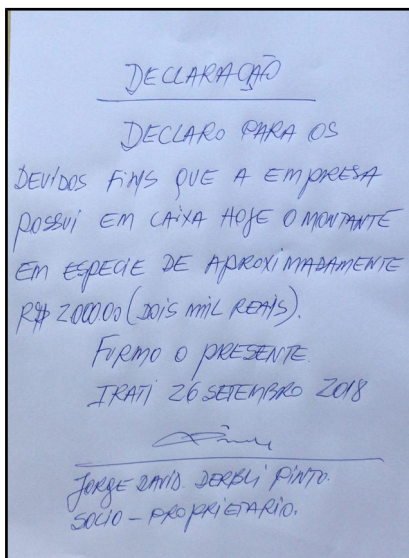 DECLARAÇÃO
DECLARO PARA OS
DEVIDOS FINS QUE A EMPRESA
POSSUI EM CAIXA HOJE O MONTANTE
EM ESPECIE DE APROXIMADAMENTE
R$ 200000 (DOIS MIL REAIS).
FIRMO O PRESENTE
IRATI 26 SETEMBRO 2018
JORGE DAVID. DERBLI PINTO.
SOCIO - PROPRIETARIO.